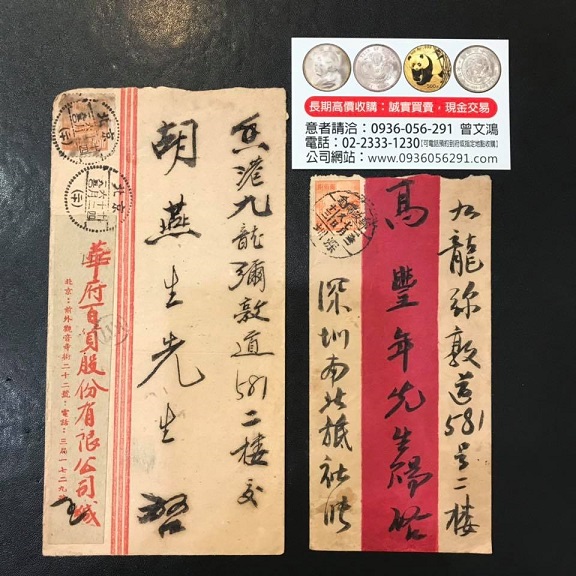 長期高價收購：誠實買賣，現金交易
意者請洽：0936-056-291 曾文鴻
電話：02-2333-1230【可電話預約到府或指定地點收購】
公司網站：www.0936056291.com
香港九龍彌敦道581二樓交
胡燕生先生 啓
華府百貨股份有限公司緘
北京：前外觀音寺街二十二號：電話：三局一七二九
北京
北京
九龍弥敦道581号二樓
高豐年先生賜啓
深圳南北